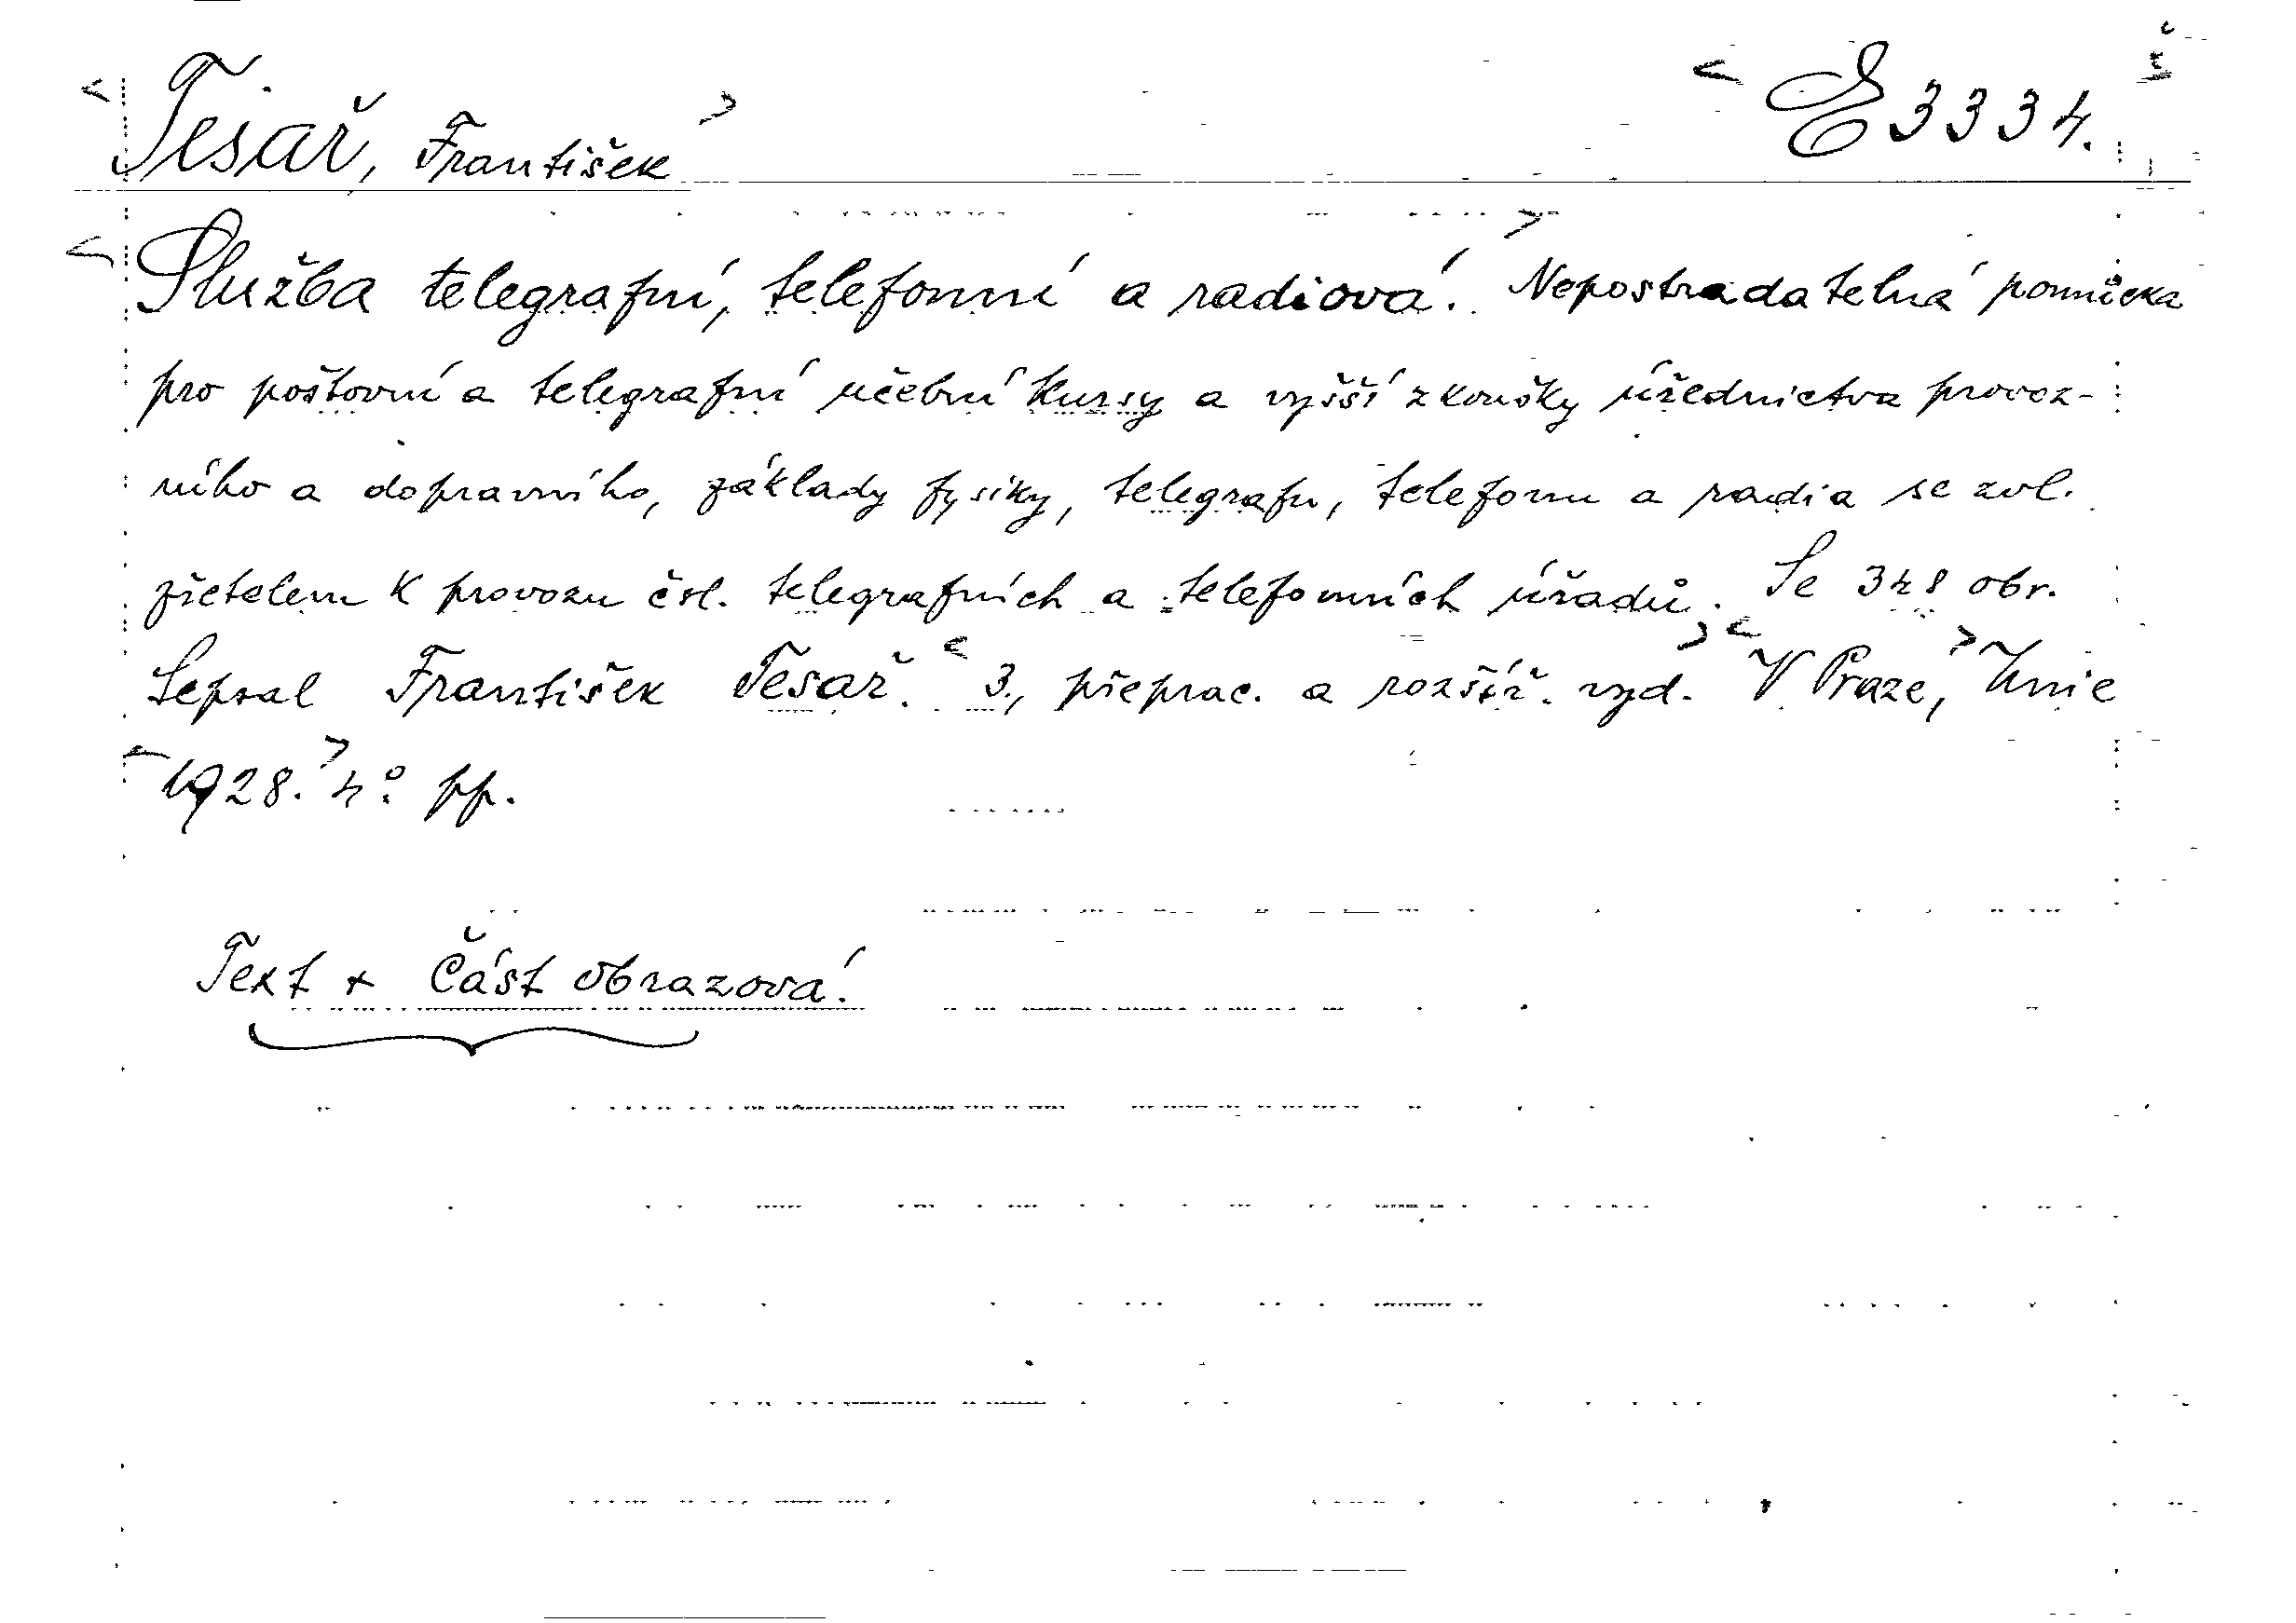 Tesař, František
E 3334.
Služba telegrafní, telefonní a radiová. Nepostradatelná pomůcka
pro poštovní a telegrafní učební kursy a vyšší zkoušky úřednictva provoz-
ního a dopravního, základy fysiky, telegrafu, telefonu a radia se zvl.
zřetelem k provozu čsl. telegrafních a telefonních úřadů. Se 348 obr.
Sepsal František Tesař. 3., přeprac. a rozšíř. vyd. V Praze, Unie
1928. 4° pp.
Text + Část obrazová.